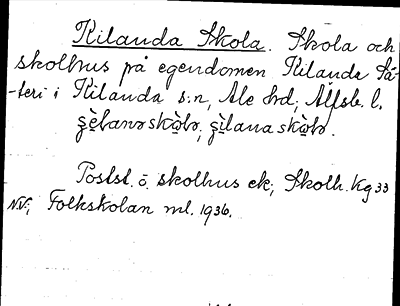 Kilanda Skola. Skola och
skolhus på egendomen Kilanda Sä-
-teri i Kilanda s:n, Ale hd, Älfsb. l.
Postst. o. skolhus ek; Skolh. Kg 33
NV; Folkskolan ml. 1936.